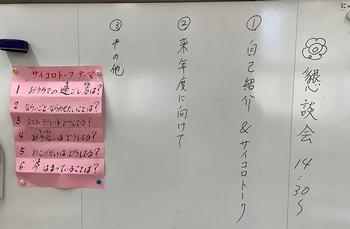 懇談会 14:30〜
① 自己紹介 & サイコロトーク
② 来年度に向けて
③ その他
サイコロトーク テーマ
1 おうちでの過ごし方は?
2 ならいごと・ならわせたいことは?
3 スマホ・タブレットどうしてる?
4 お手伝いはどうしてる?
5 おこづかいはどうしてる?
6 今はまっていることは?